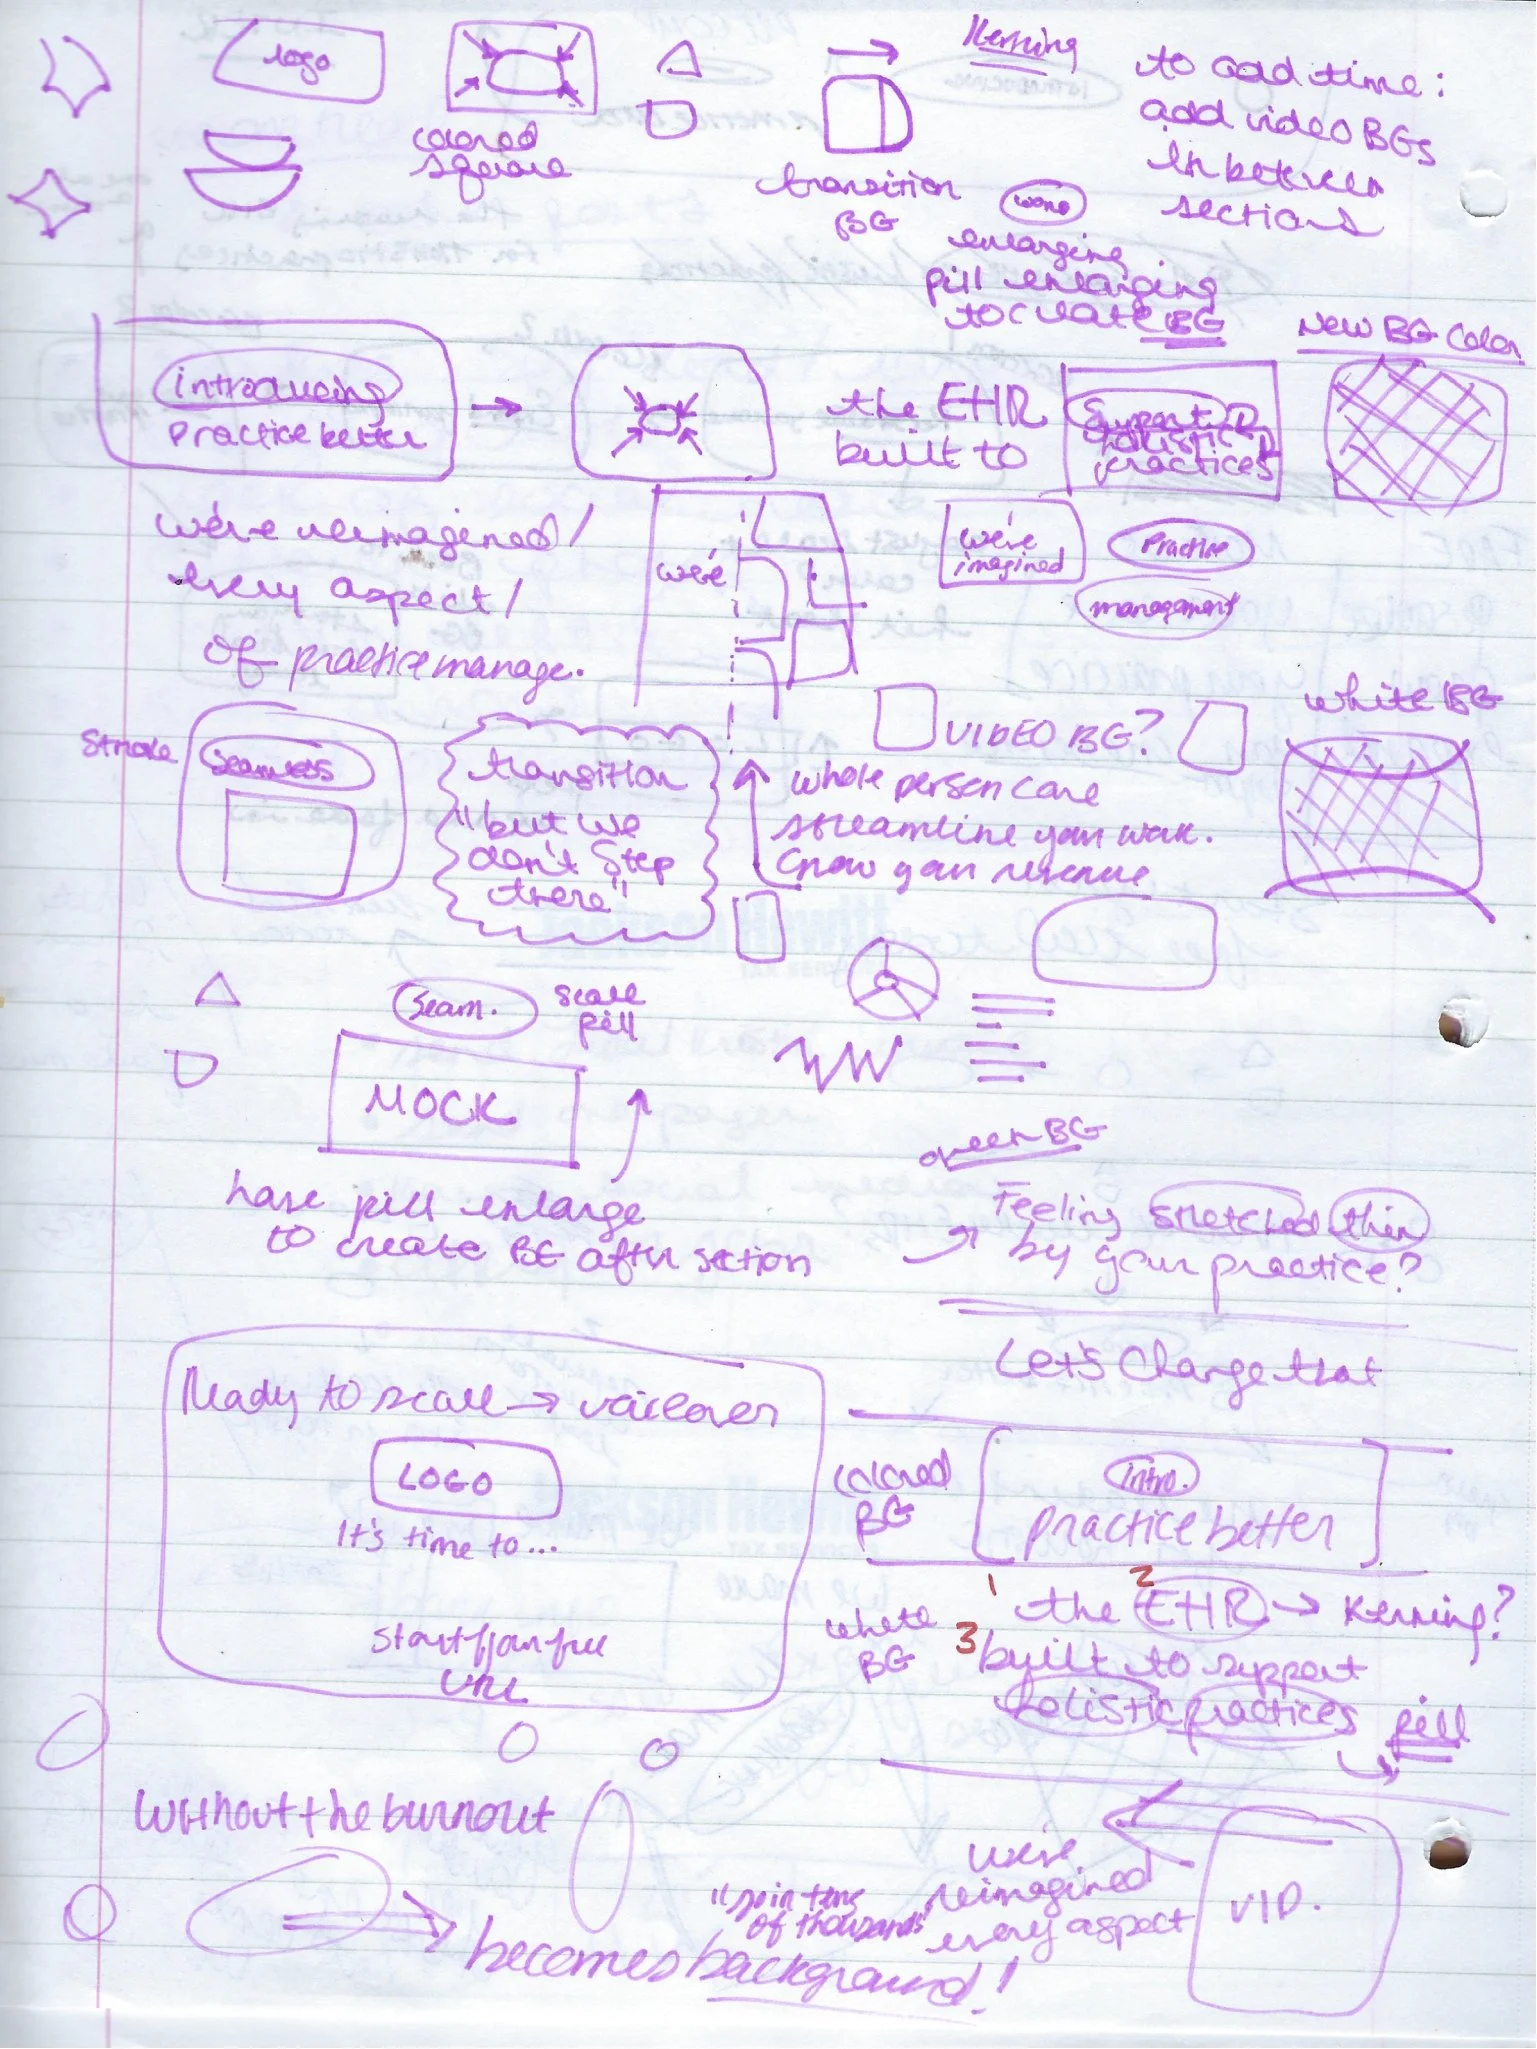 logo
Kerning
to add time:
add video BGs
in between
sections
colored
square
transition
BG
word
enlarging
pill enlarging
to create BG
New BG Color
introducing
practice better
the EHR
built to
Support
holistic
practices
we're reimagined/
every aspect/
of practice manage.
we're
we're
imagined
Practice
management
white BG
VIDEO BG?
Stroke
Seamless
transition
"but we
don't Stop
there"
whole person care
streamline your work.
Grow your revenue
Seam.
scale
pill
MOCK
have pill enlarge
to create BG after section
green BG
Feeling stretched thin
by your practice?
Let's Change that
Ready to scale → voiceover
LOGO
It's time to...
Start for free
URL
colored
BG
intro.
practice better
1 2
the EHR → Kerning?
white
BG
3 built to support
holistic practices
pill
Without the burnout
"join tens
of thousands"
we're
reimagined
every aspect
VID.
becomes background!